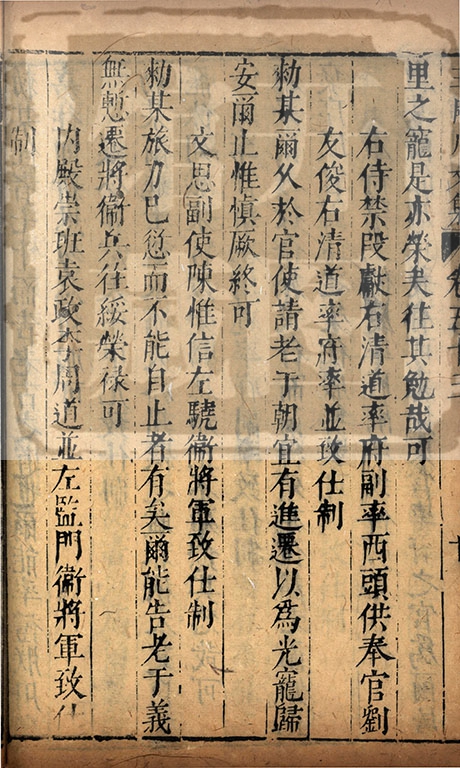 王臨川文集 卷五十三 十
里之寵是亦榮矣往其勉哉可
右侍禁段獻右清道率府副率西頭供奉官劉
友俊右清道率府率並致仕制
勑某爾久於官使請老于朝宜有進遷以爲光寵歸
安爾止惟愼厥終可
文思副使陳惟信左驍衞將軍致仕制
勑某旅力已愆而不能自止者有矣爾能告老于義
無愆遷將衞兵往綏榮祿可
内殿崇班袁政李周道並左監門衞將軍致仕
制